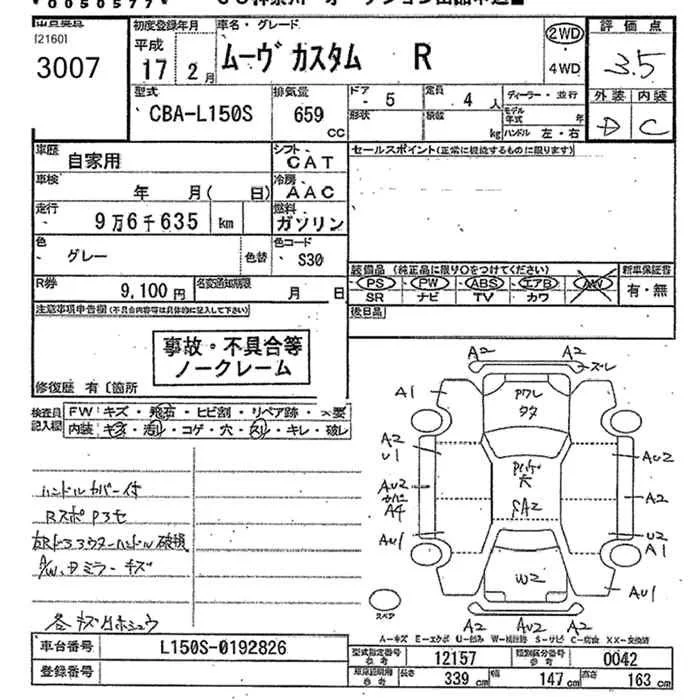 *0050577*
[2160]
3007
初度登録年月
平成
17 2月
車名・グレード
ムーヴ カスタム R
2WD
4WD
評価点
3.5
外装 内装
D C
型式
CBA-L150S
排気量
659
CC
ドア
5
定員
4 人
形状
積載
kg
ディーラー・並行
モデル年式 年
ハンドル 左・右
車歴
自家用
シフト
CAT
車検
年 月( 日)
冷房
AAC
走行
9万6千635 km
燃料
ガソリン
色
グレー
色替
色コード
S30
R券
9,100 円
名変通知期限
月 日
セールスポイント(正常に機能するものに限ります)
装備品 (純正品に限り○をつけてください)
PS PW ABS エアB AW
SR ナビ TV カワ
新車保証書
有・無
後日品
注意事項申告欄(不具合内容等は具体的に記入して下さい)
事故・不具合等
ノークレーム
修復歴 有 〔箇所
検査員
記入欄
FW: キズ・飛石・ヒビ割・リペア跡・×要
内装: キズ・汚レ・コゲ・穴・スレ・キレ・破レ
ハンドルカバー付
キズ
A2 A2
ズレ
A1 A1
A2
U1
AU2
A4
AU1
AU2
A2
U2
A1
AU1
W2
スペア
A2 AU2 A2
A-キズ E-エクボ U-凹み W-補修跡 S-サビ C-腐食 XX-交換済
車台番号
L150S-0192826
登録番号
型式指定番号
参考
12157
類別区分番号
参考
0042
参考
長さ 339 cm
幅 147 cm
高さ 163 cm